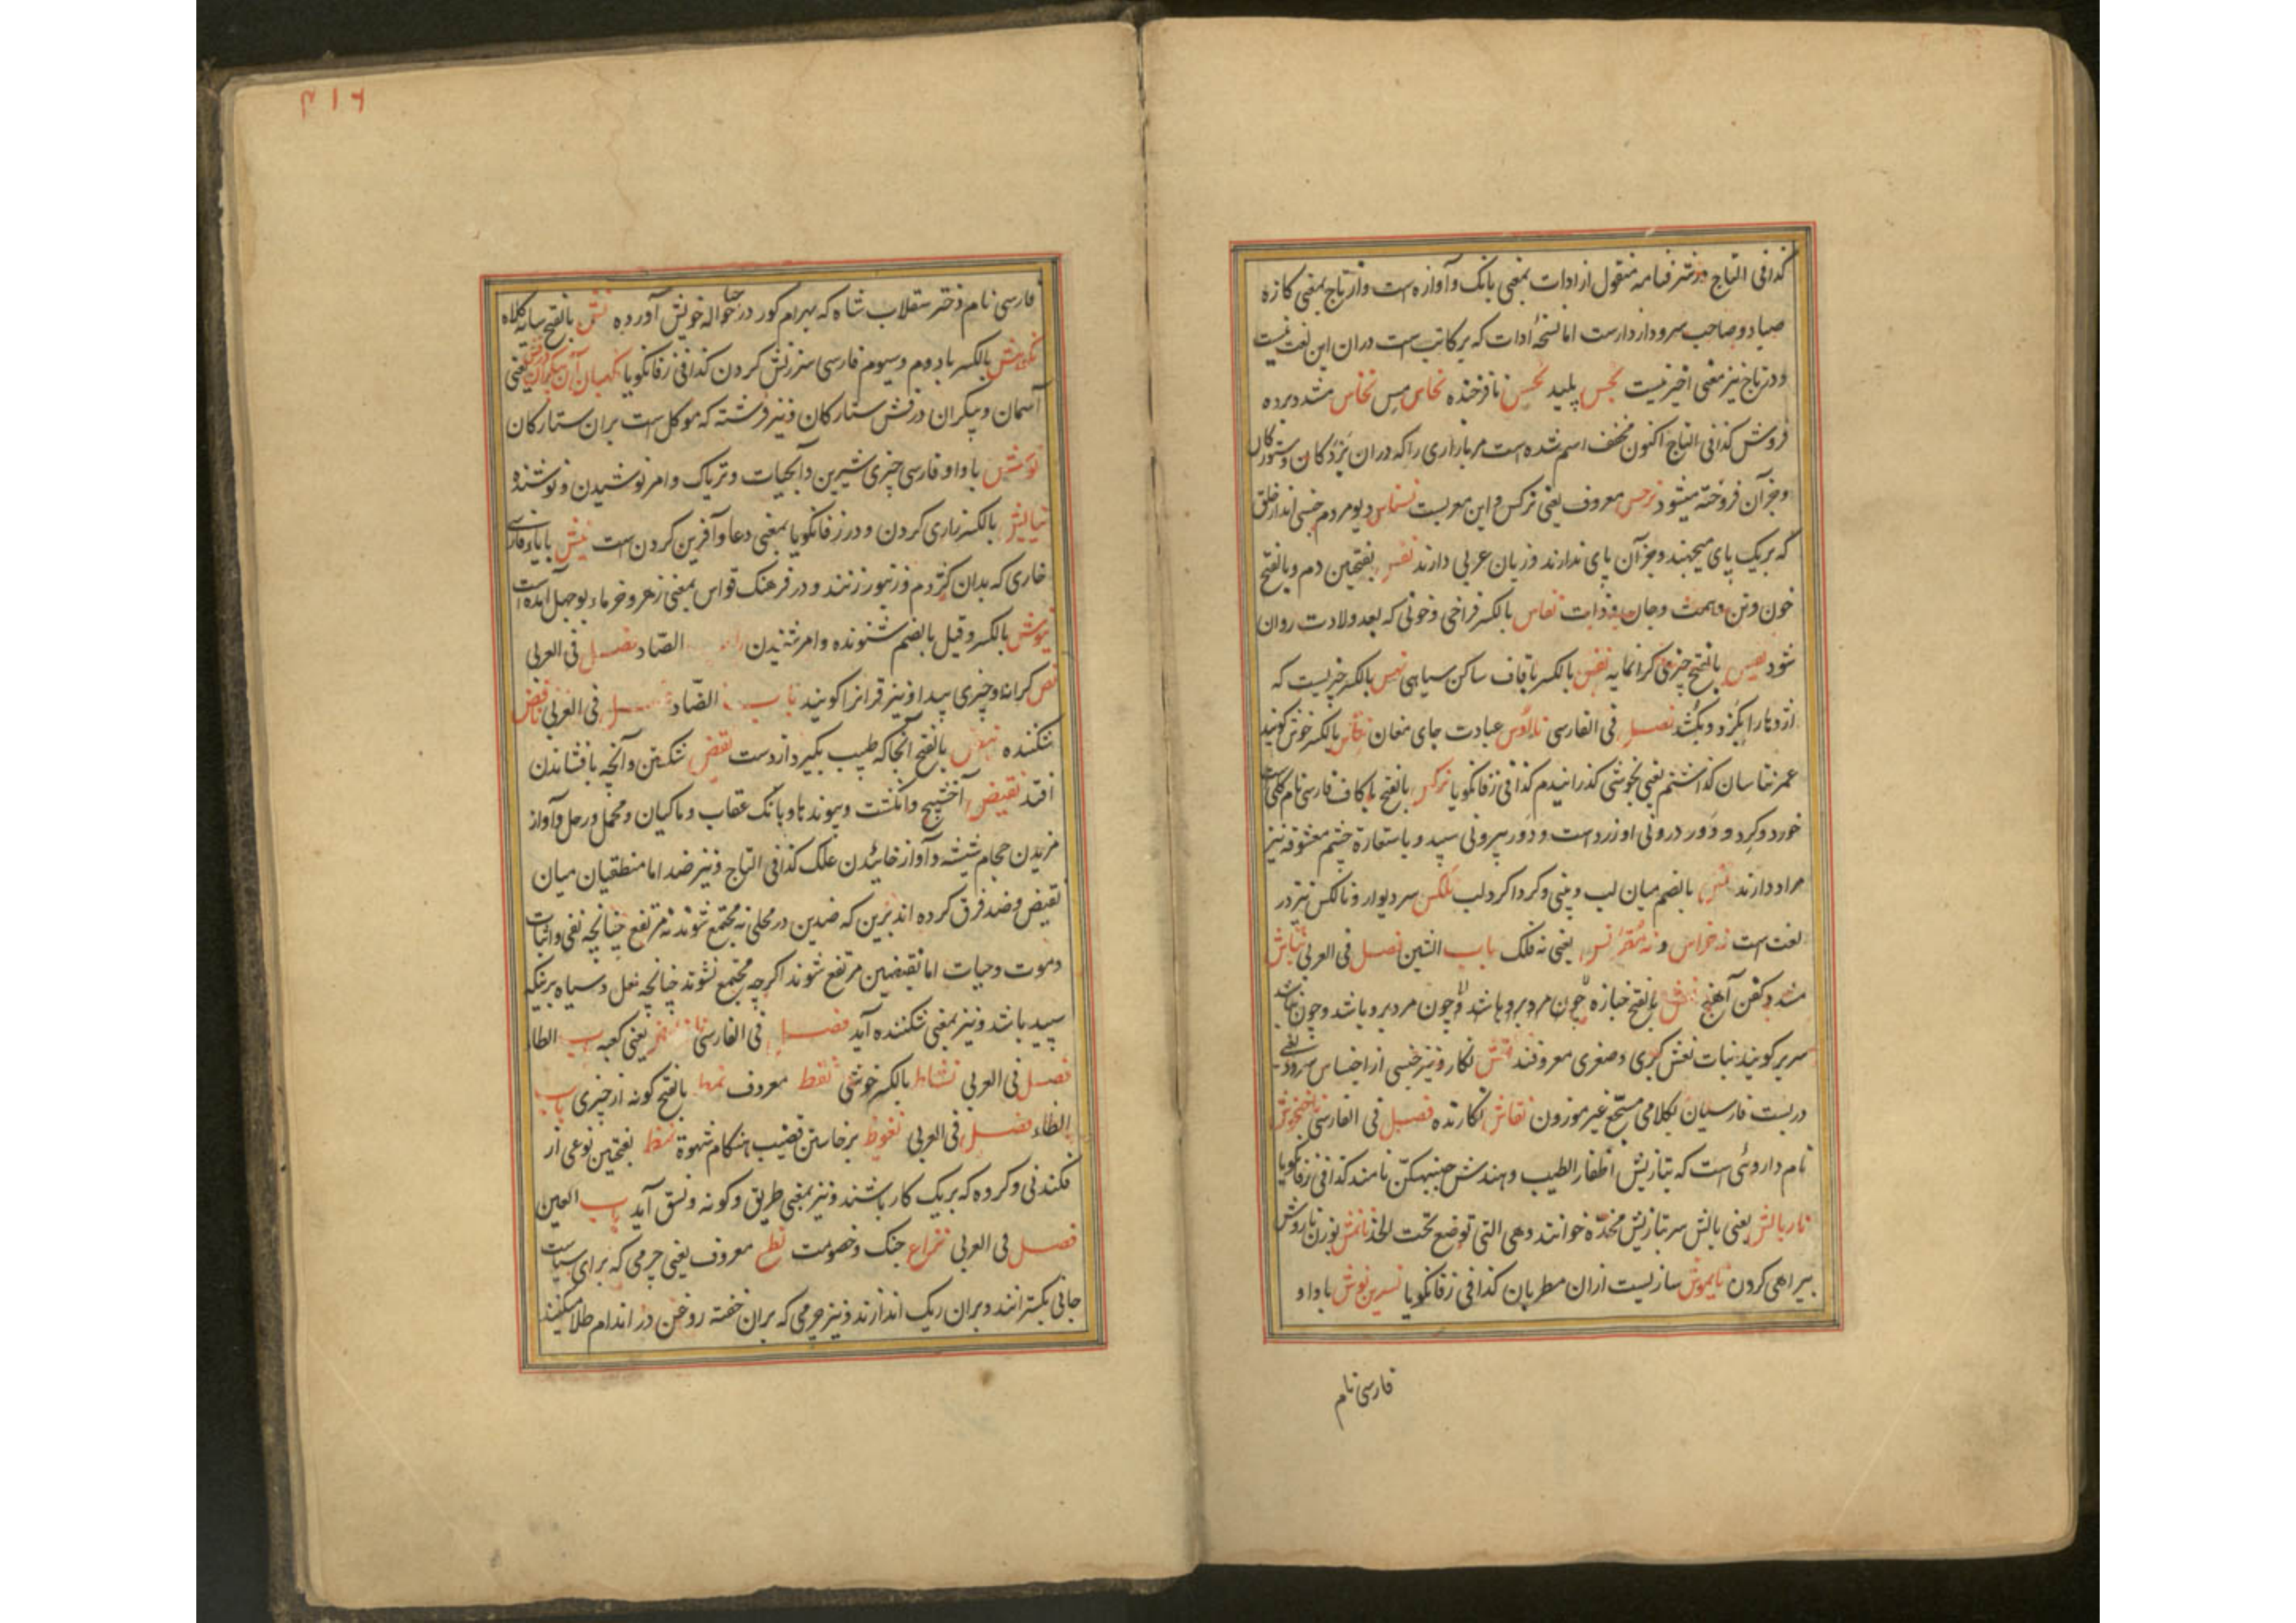 کذا فی التاج و در شرفنامه منقول از ادات بمعنی بانک و آوازه است و از تاج بمعنی کازه
صیاد و صاحب سرود از دارست اما نسخهٔ ادات که بر کاتب است دران این لغت نیست
و در تاج نیز معنی اخیر نیست نجس پلید نحس نافرخنده نحاس مس نخاس مشدد برده
فروش کذا فی التاج اکنون مخفف اسم شده است مر بازاری را که دران بردکان و ستوران
و جز آن فروخته میشود نرجس معروف یعنی نرکس و این معربست نسناس دیو مردم جنسی اند از خلق
که بریک پای میجهند و جز آن پای ندارند و زبان عربی دارند نفس بفتحین دم و بالفتح
خون و تن و همت و جان و ذات نفاس بالکسر فراخی و خونی که بعد ولادت روان
شود نفیس بالفتح چیزی کرانمایه نقس بالکسر با قاف ساکن سیاهی نمس بالکسر چیزیست که
اژدها را بکزد و بکشد فصل فی الفارسی ناؤس عبادت جای مغان بالکسر خوش کویند
عمر نتاسان کذاشتم یعنی بخوشی کذرانیدم کذا فی زفانکویا نرکس بالفتح با کاف فارسی نام کلی است
خورد و کرد و دور درونی او زردست و دور بیرونی سپید و باستعاره چشم معشوقه نیز
مراد دارند بالضم میان لب و بینی و کرداکرد لب نکس سر دیوار و نالکس نیز در
لغت است نه خراس و نه مقرنس یعنی نه فلک باب الشین فصل فی العربی نباش
مشدد کفن آهنج نعش بالفتح جنازه چون مرد برو باشد و چون مرد برو باشد و چون نباشد
سریر کویند بنات نعش کبری و صغری معروفند نقش نکار و نیز جنسی از اجناس سرود یعنی
دربست فارسیان بکلامی مسجع غیر موزون نقاش نکارنده فصل فی الفارسی ناخنخوش
نام داروئی است که بتازیش اظفار الطیب و هندش نامند کذا فی زفانکویا
نار بالش یعنی بالش سر بتازیش مخده خوانند و هی التی توضع تحت الخد بوزن ناروش
بیراهی کردن نایموش سازیست ازان مطربان کذا فی زفانکویا نسرین نوش با واو
فارسی نام
۴۱۶
فارسی نام دختر سقلاب شاه که بهرام کور در حباله خویش آورده نش بالفتح سایه کلاه
نکوهش بالکسر با دوم و سیوم فارسی سرزنش کردن کذا فی زفانکویا یعنی
آسمان و پیکران درفش ستارکان و نیز فرشته که موکل است بران ستارکان
نوش با واو فارسی چیزی شیرین و آبحیات و تریاک و امر نوشیدن و نوشنده
نیایش بالکسر زاری کردن و در زفانکویا بمعنی دعا و آفرین کردن است نیش با یاء فارسی
خاری که بدان کژدم و زنبور زنند و در فرهنک قواس بمعنی زهر و خرماء بوجهل آمده است
نیوش بالکسر و قیل بالضم شنونده و امر شنیدن باب الصاد فصل فی العربی
نص کرانه و چیزی پیدا و نیز قرانرا کویند باب الضاد فصل فی العربی ناقض
شکننده نبض بالفتح آنجا که طبیب بکیرد از دست نقض شکستن و آنچه بافشاندن
افتد نقیض آخشیج و انکشت و پیوندها و بانک عقاب و ماکیان و محمل و رحل و آواز
مزیدن حجام شیشه و آواز خائیدن علک کذا فی التاج و نیز ضد اما منطقیان میان
نقیض و ضد فرق کرده اند برین که ضدین در محلی نه مجتمع شوند نه مرتفع چنانچه نفی و اثبات
و موت و حیات اما نقیضین مرتفع شوند اکرچه مجتمع نشوند چنانچه لعل و سیاه برینکه
سپید باشد و نیز بمعنی شکننده آید فصل فی الفارسی یعنی کعبه باب الطاء
فصل فی العربی نشاط بالکسر خوشی نقط معروف نمط بالفتح کونه از چیزی باب
الظاء فصل فی العربی نعوظ برخاستن قضیب هنکام شهوة نمظ بفتحین نوعی از
فکندنی و کروه که بریک کار باشند و نیز بمعنی طریق و کونه و نسق آید باب العین
فصل فی العربی نزاع جنک و خصومت نطع معروف یعنی چرمی که برای سیاست
جائی بکسترانند و بران ریک اندازند و نیز چرمی که بران خفته روغن در اندام طلا میکنند